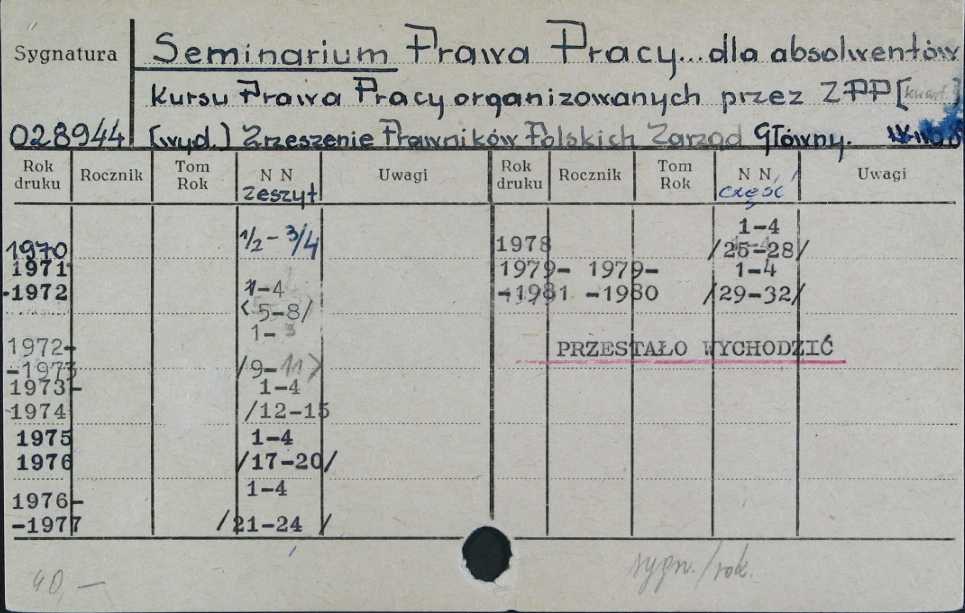 Sygnatura
Seminarium Prawa Pracy... dla absolwentów
kursu Prawa Pracy organizowanych przez ZPP [kwart.]
028944 (wyd.) Zrzeszenie Prawników Polskich Zarząd Główny.
Rok druku Rocznik Tom Rok N N zeszyt Uwagi Rok druku Rocznik Tom Rok N N część Uwagi
1970 1/2 - 3/4
1971
-1972 1-4
<5-8/
1972- 1-3
-1973 /9-11>
1973- 1-4
1974 /12-15
1975 1-4
1976 /17-20/
1976- 1-4
-1977 /21-24 /
1978 1-4
/25-28/
1979- 1979- 1-4
-1981 -1980 /29-32/
PRZESTAŁO WYCHODZIĆ
40,—
sygn./rok.